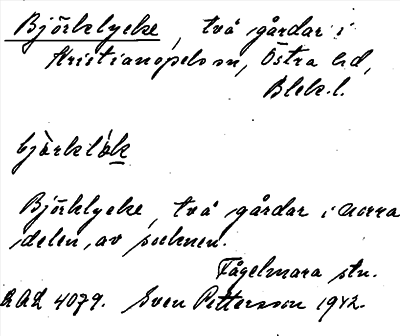 Björklycke, två gårdar i
Kristianopels sn, Östra hd,
Blek.l.
bjò̀rklö̀k
Björklycke, två gårdar i norra
delen, av socknen.
Fågelmara stn.
AAL 4079. Sven Pettersson 1942.